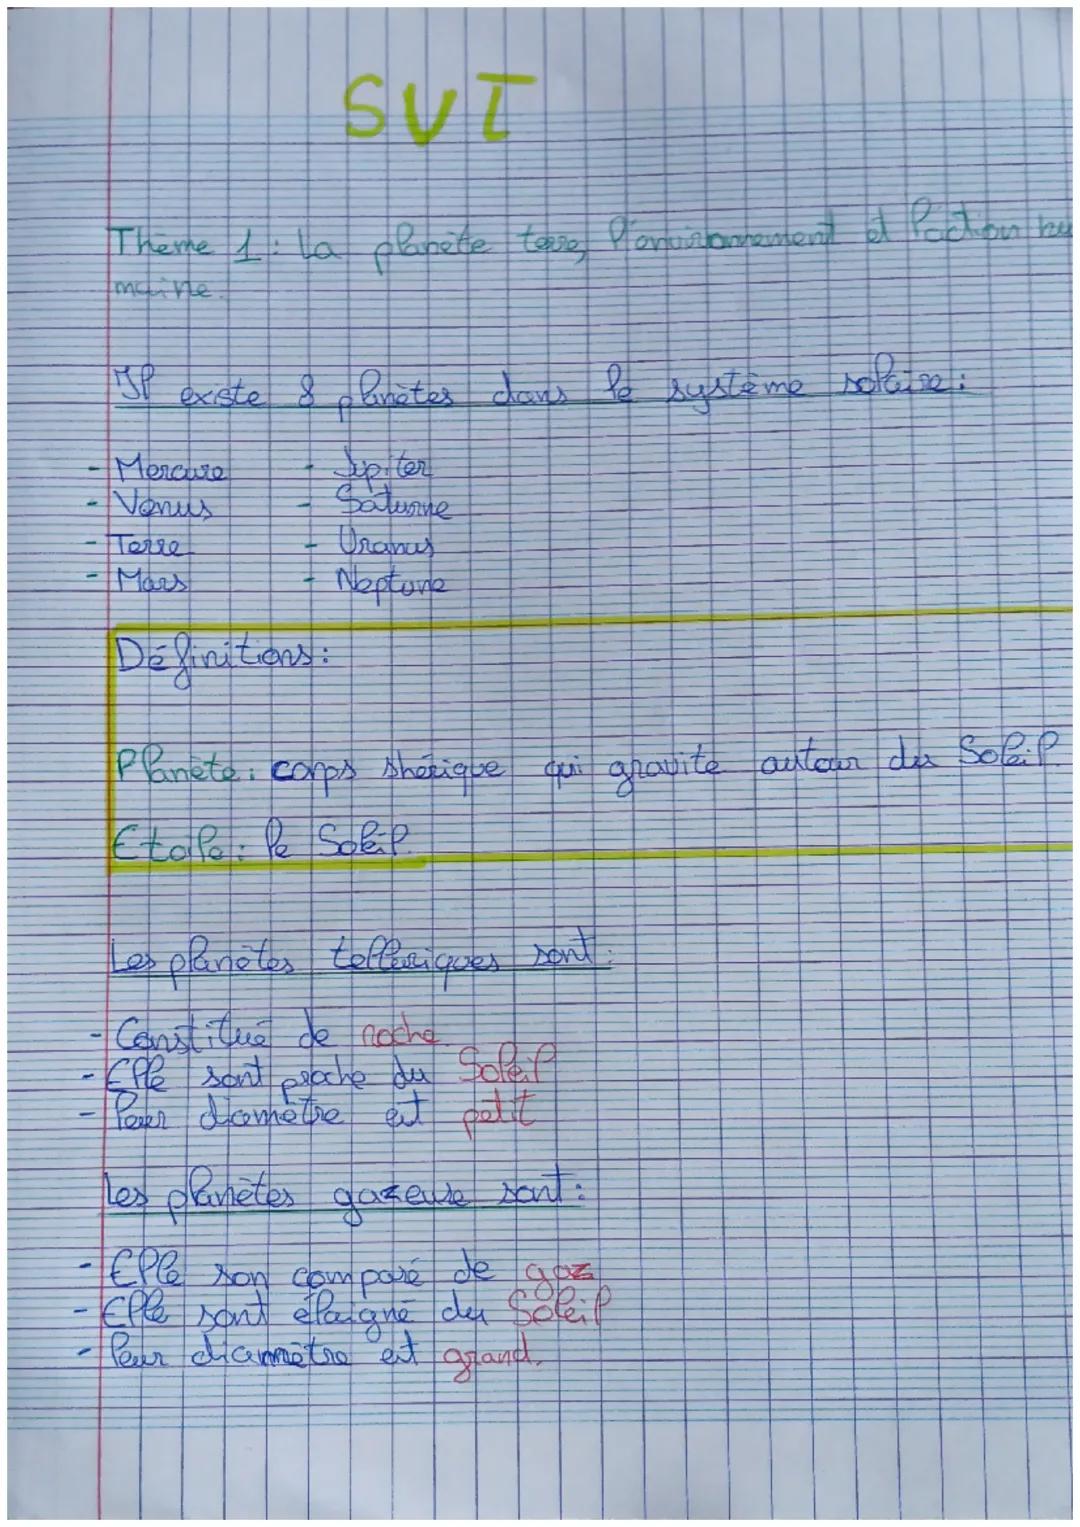 SVT
Thème 1: La planète terre, l'environnement et l'action hu
maine.
Il existe 8 planètes dans le système solaire:
- Mercure - Jupiter
- Vénus - Saturne
- Terre - Uranus
- Mars - Neptune
Définitions:
Planète: corps shérique qui gravite autour du Soleil.
Etoile: le Soleil.
Les planètes telluriques sont:
- Constitué de roche.
- Elle sont proche du Soleil
- Leur diamètre est petit
Les planètes gazeuse sont:
- Elle son composé de gaz
- Elle sont éloigné du Soleil
- Leur diammètre est grand.